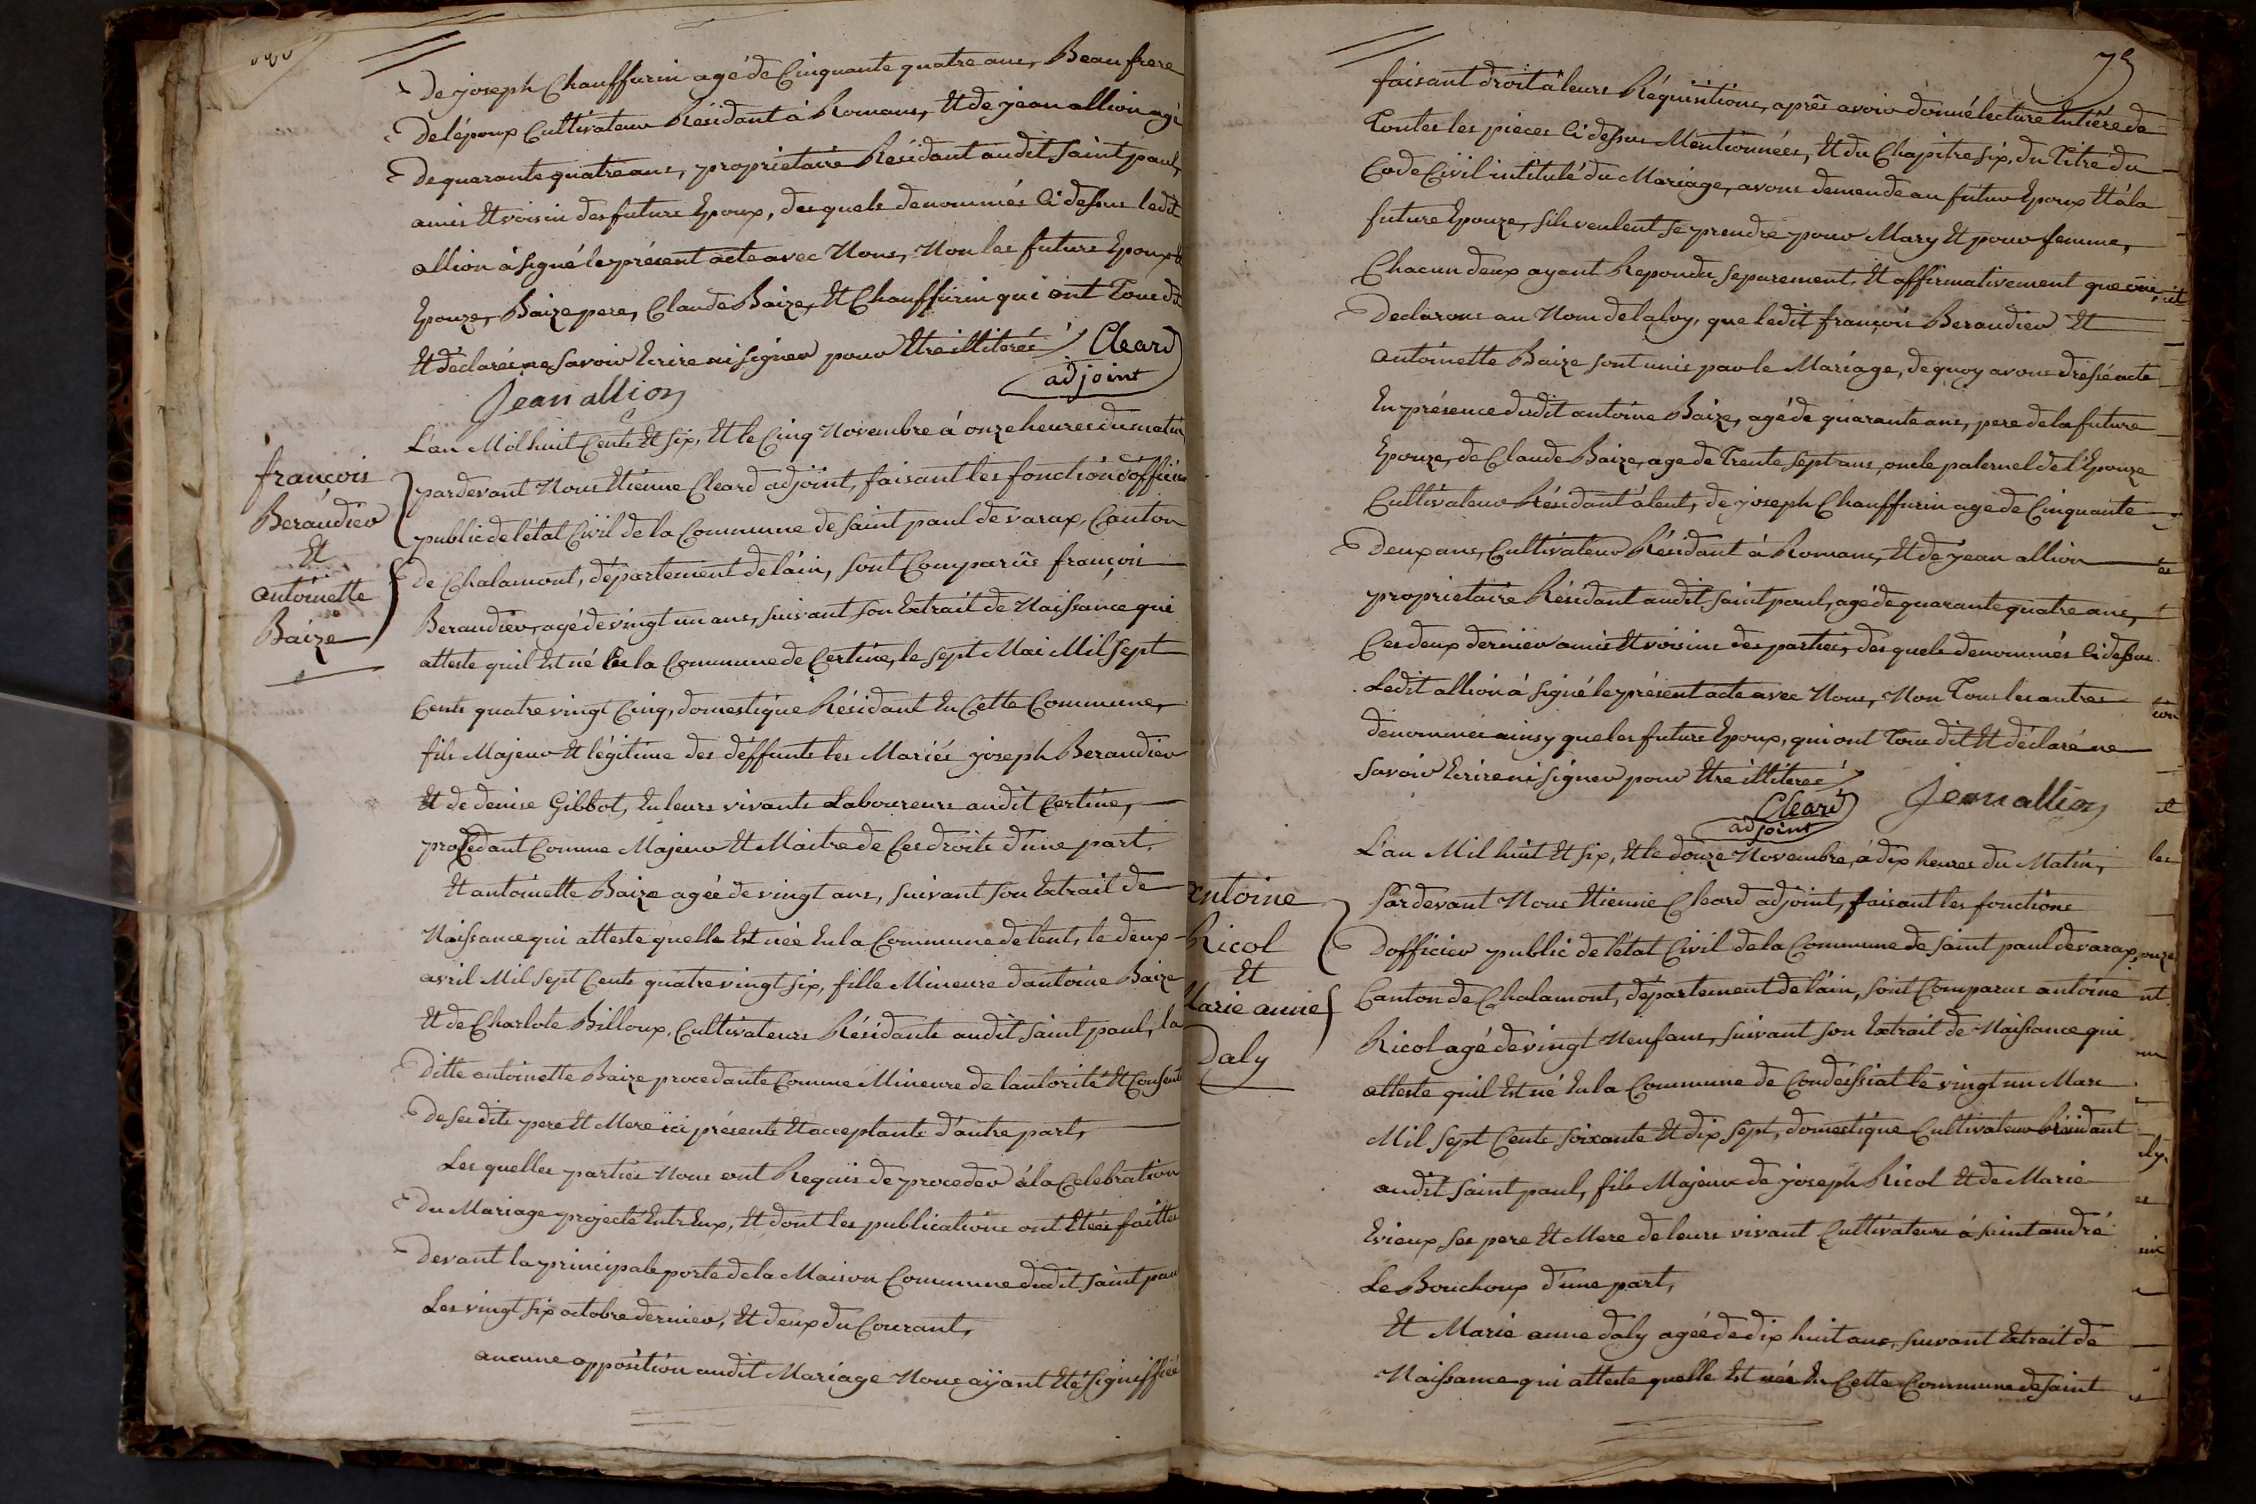 De joseph Chauffurin agé de Cinquante quatre ans, Beau frere
De lépoux Cultivateur Résidant à Romans, Et de jean allion agé
De quarante quatre ans, proprietaire Résidant audit saint paul,
amis Et voisin des futurs Epoux, des quels denommés Ci dessus ledit
allion à signé le présent acte avec Nous, Non les futurs Epoux Et
Epouze, Baize pere, Claude Baize, Et Chauffurin qui ont Tous dit
Et déclarés ne savoir Ecrire ni signer pour Etre illiterés
Cleard
adjoint
Jean allion
françois
Beraudier
Et
antoinette
Baize
L'an Mil huit Cents Et six, Et le Cinq Novembre à onze heures du matin
pardevant Nous Etienne Cleard adjoint, faisant les fonction d'officier
public de létat Civil de la Commune de saint paul de varax, Canton
de Chalamont, département de lain, sont Comparus françois
Beraudier, agé de vingt un ans, suivant son Extrait de Naissance qui
atteste quil Est né En la Commune de Certine, le sept Mai Mil sept
Cents quatre vingt Cinq, domestique Résidant En Cette Commune,
fils Majeur Et légitime des déffunts les Mariés joseph Beraudier
Et de denise Gibbot, En leurs vivants Laboureurs audit Certine,
procedant Comme Majeur Et Maitre de Ces droits d'une part,
Et antoinette Baize agée de vingt ans, suivant son Extrait de
Naissance qui atteste quelle Est née En la Commune de lent, le deux
avril Mil sept Cents quatre vingt six, fille Mineure dantoine Baize
Et de Charlote Billoux, Cultivateurs Résidants audit saint paul, la
Ditte antoinette Baize procedante Comme Mineure de lautorité Et Consente
De ses dits pere Et Mere ici présents Et acceptants d'autre part,
Les quelles parties Nous ont Requis de proceder à la Celebration
Du Mariage projecté Entr Eux, Et dont les publications ont Etées faittes
Devant la principale porte de la Maison Commune dudit saint paul
Les vingt six octobre dernier, Et deux du Courant,
aucune opposition audit Mariage Nous ayant Eté Signiffiée
75
faisant droit à leurs Réquisitions, après avoir donné lecture Entiére de
Toutes les pieces Ci dessus Mentionnées, Et du Chapitre six, du Titre du
Code Civil intitulé du Mariage, avons demende au futur Epoux Et à la
future Epouze, sils veulent se prendre pour Mary Et pour femme,
Chacun deux ayant Repondu separement, Et affirmativement que oui,
Declarons au Nom de la loy, que ledit françois Beraudier Et
antoinette Baize sont unis par le Mariage, de quoy avons dressé acte
En présence dudit antoine Baize, agé de quarante ans, pere de la future
Epouze, de Claude Baize, age de Trente sept ans, oncle paternel de l'Epouze
Cultivateur Résidant à lent, de joseph Chauffurin age de Cinquante
Deux ans, Cultivateur Résidant à Romans, Et de jean allion
proprietaire Résidant audit saint paul, agé de quarante quatre ans,
Ces deux dernier amis Et voisins des parties, des quels denommés Ci dessus
Ledit allion à signé le présent acte avec Nous, Non Tous les autres
denommés ainsy que les futurs Epoux, qui ont Tous dit Et déclaré ne
savoir Ecrire ni signer pour Etre illiterés
Cleard
adjoint
Jean allion
antoine
Ricol
Et
Marie anne
Daly
L'an Mil huit Et six, Et le douze Novembre, à dix heures du Matin,
Pardevant Nous Etienne Cleard adjoint, faisant les fonctions
Dofficier public de létat Civil de la Commune de saint paul de varax,
Canton de Chalamont, département de lain, sont Comparus antoine
Ricol agé de vingt Neuf ans, suivant son Extrait de Naissance qui
atteste quil Est né En la Commune de Condeissiat le vingt un Mars
Mil sept Cents soixante Et dix sept, domestique Cultivateur Résidant
audit saint paul, fils Majeur de joseph Ricol Et de Marie
Evieux ses pere Et Mere de leurs vivant Cultivateurs à saint andré
Le Bouchoux d'une part,
Et Marie anne Daly agée de dix huit ans, suivant Extrait de
Naissance qui atteste quelle Est née En Cette Commune de saint